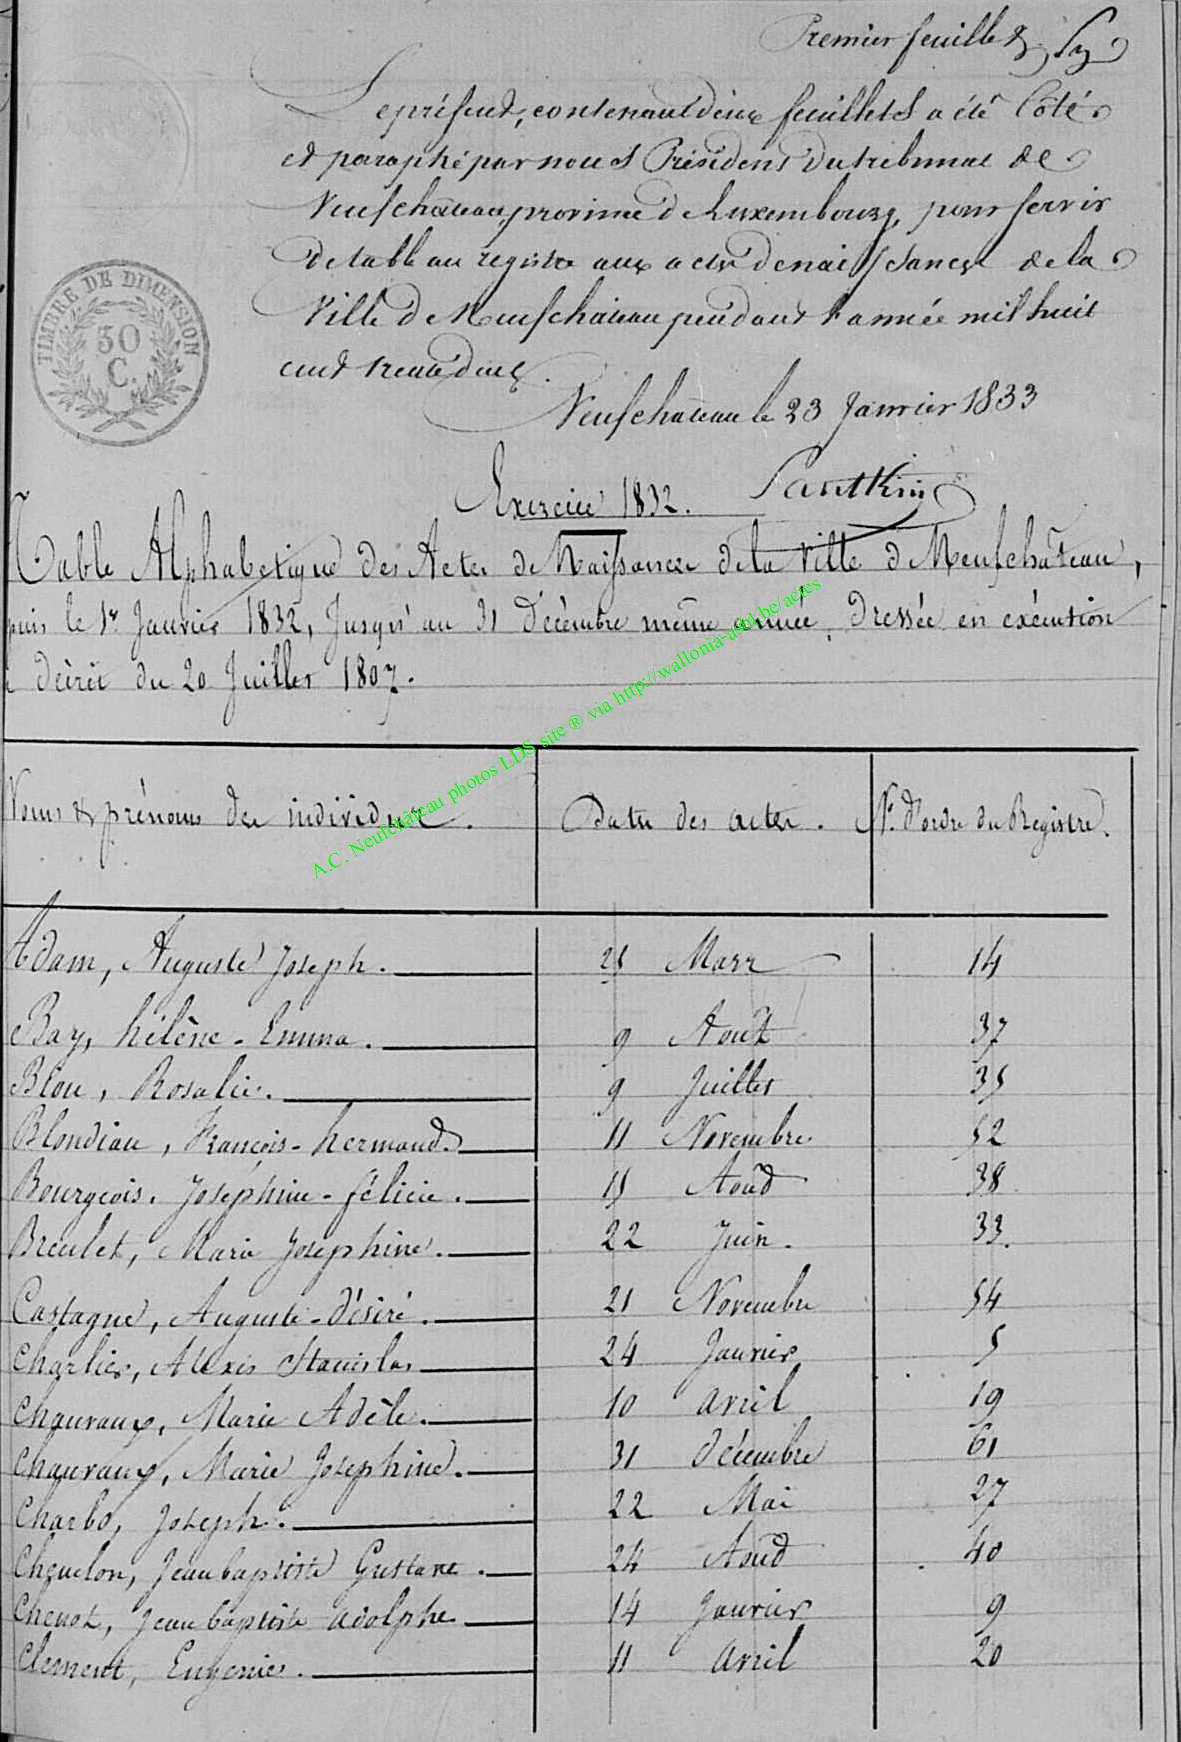 Premier feuillet
Le présent, contenant deux feuillets a été Côté
et paraphé par nous Président du tribunal de
Neufchâteau province de Luxembourg, pour servir
de table au registre aux actes de naissances de la
Ville de Neufchâteau pendant l'année mil huit
cent trente deux.
TIMBRE DE DIMENSION
30
C.
Neufchateau le 23 Janvier 1833
Exercice 1832.
Table Alphabetique des Actes de Naissances de la Ville de Neufchâteau,
puis le 1r Janvier 1832, Jusqu'au 31 Décembre même année, Dressée en exécution
décret du 20 Juillet 1807.
A.C. Neufchâteau photos LDS site ® via http://wallonia-asbl.be/actes
Noms & prénoms des individus. Date des actes. No. d'ordre du Registre.
Adam, Auguste Joseph. 25 Mars 14
Bay, hélène-Emma. 9 Aout 37
Biou, Rosalie. 9 Juillet 35
Blondiau, François-hermand 11 Novembre 52
Bourgeois, Joséphine-félicie. 15 Aoûd 38
Breulet, Marie Josephine. 22 Juin. 33.
Castagne, Auguste-Désiré. 21 Novembre 54
Charlier, Alexis Stanislas 24 Janvier 5
Chauvaux, Marie Adèle. 10 avril 19
Chauvaux, Marie Josephine. 31 décembre 61
Charbo, Joseph. 22 Mai 27
Chenelon, Jean baptiste Gustave. 24 Aoûd 40
Chenot, Jean baptiste adolphe 14 Janvier 9
Clement, Eugenie. 11 avril 20